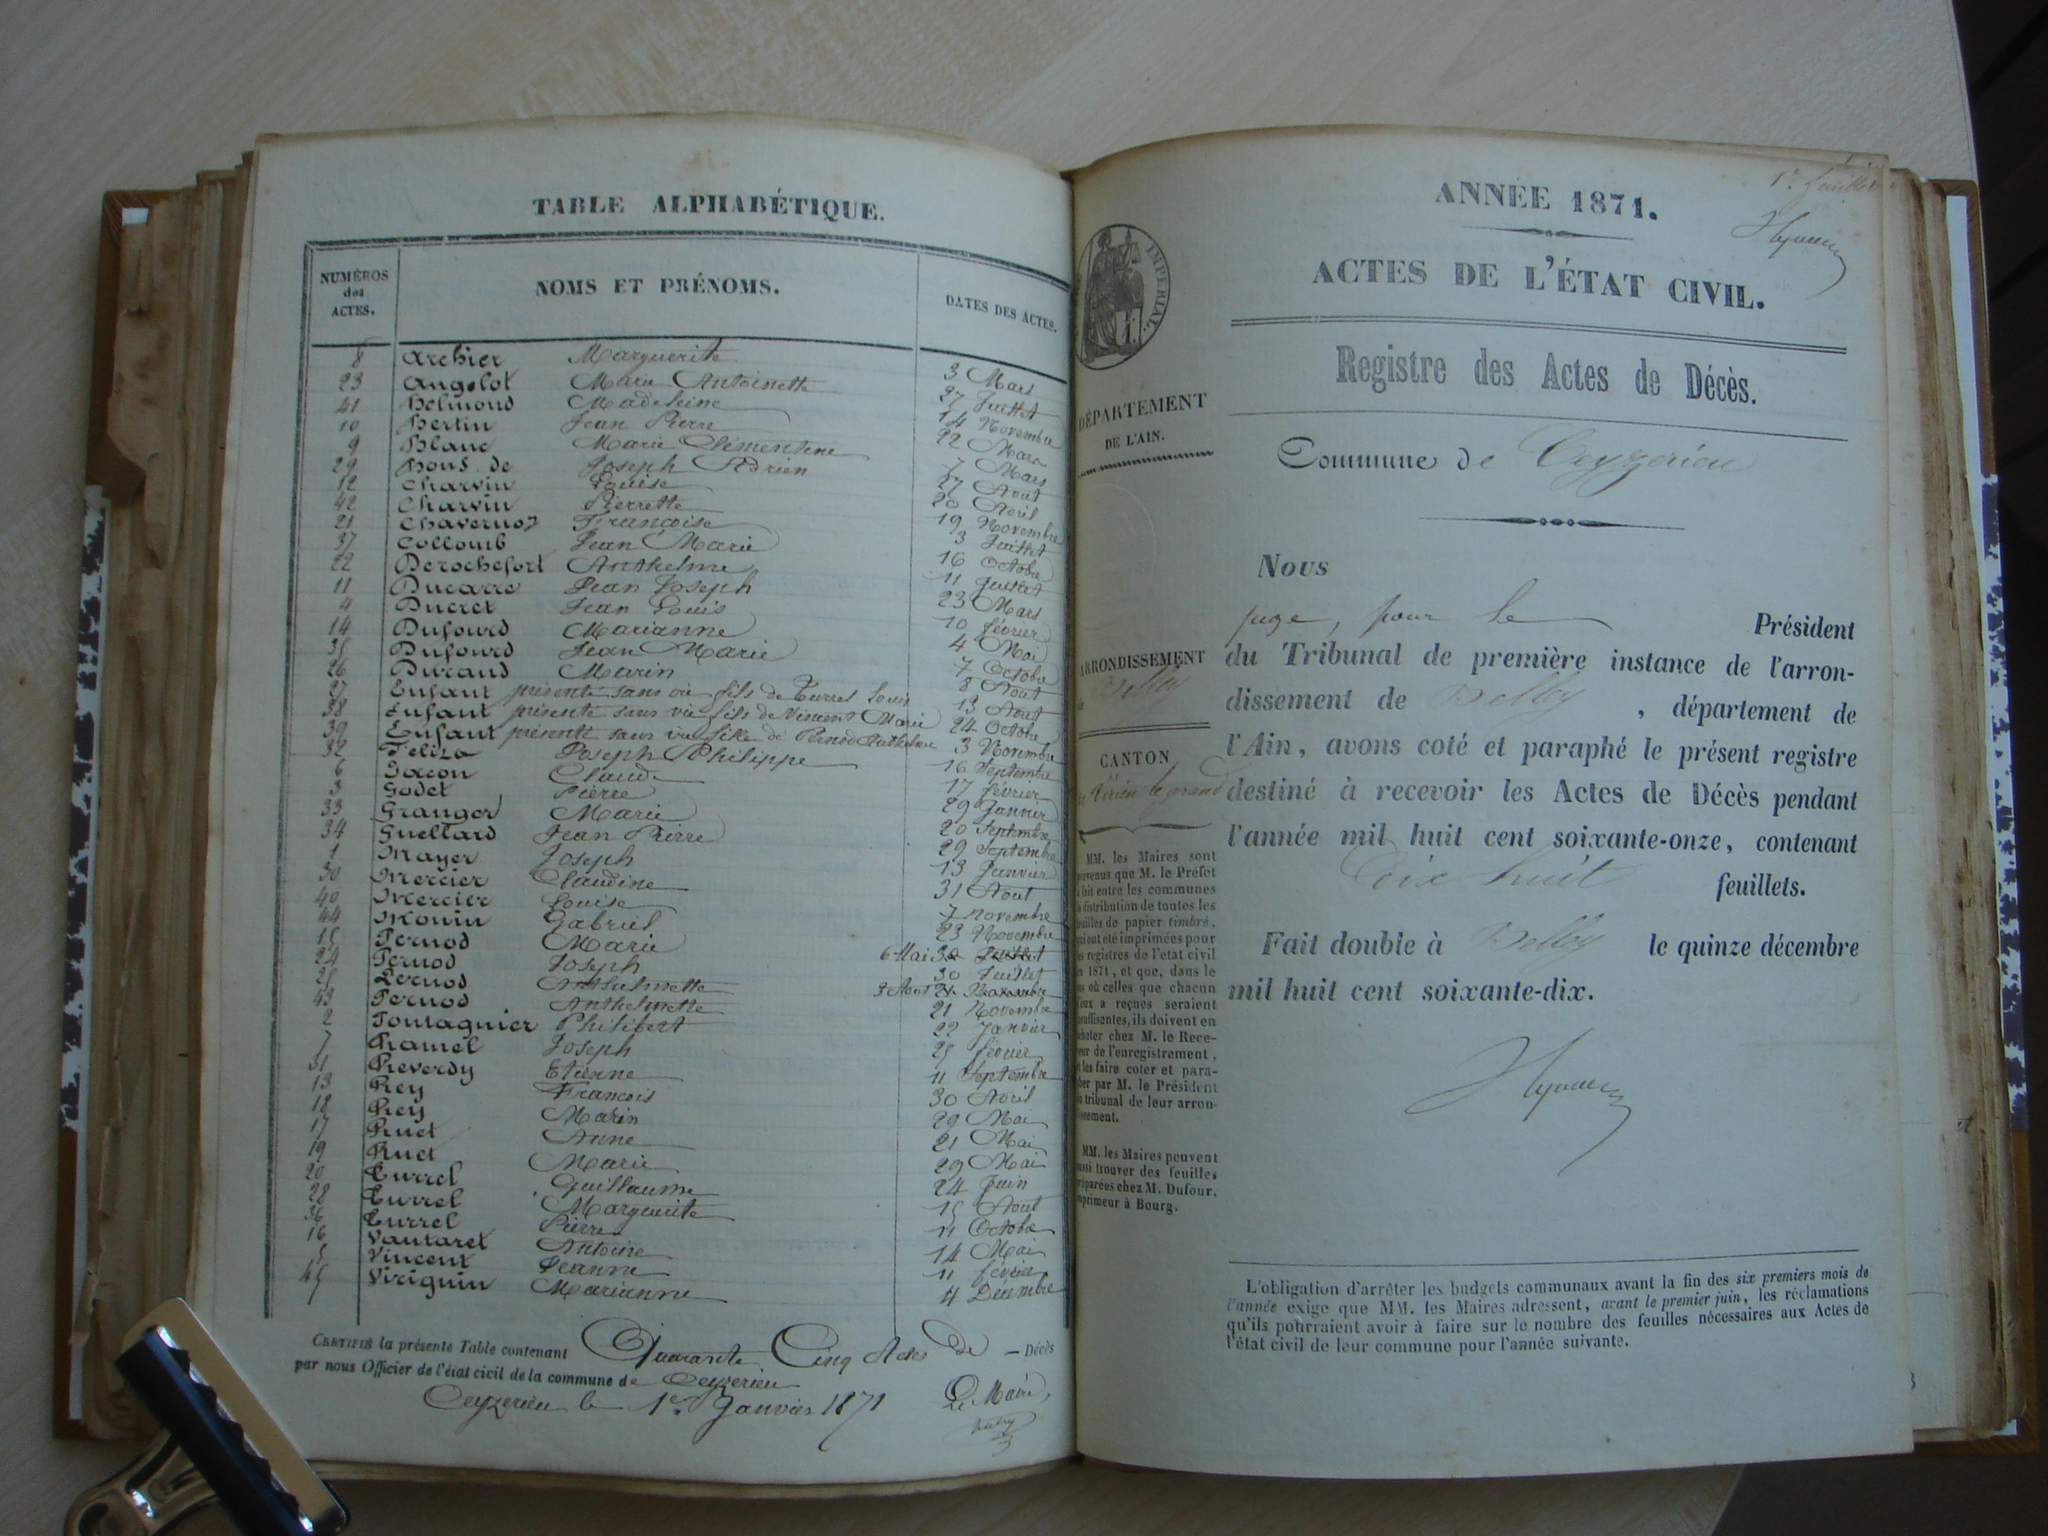 TABLE ALPHABÉTIQUE.
NUMÉROS des ACTES. NOMS ET PRÉNOMS. DATES DES ACTES.
8 Archier Marguerite 3 Mars
23 Angelot Marie Antoinette 27 Juillet
41 Belmond Madeleine 14 Novembre
10 Bertin Jean Pierre 22 Mars
9 Blanc Marie Clémentine 7 Mars
29 Bons de Joseph Adrien 27 Aout
12 Charvin Louise 20 Avril
42 Charvin Pierrette 19 Novembre
21 Chavernoz Françoise 3 Juillet
37 Collomb Jean Marie 16 Octobre
22 Derochefort Anthelme 11 Juillet
11 Ducarre Jean Joseph 23 Mars
4 Ducret Jean Louis 10 février
14 Dufourd Marianne 4 Mai
35 Dufourd Jean Marie 7 Octobre
26 Durand Marin 8 Aout
27 Enfant présenté sans vie fils de Turrel Louis 13 Aout
38 Enfant présenté sans vie fils de Vincent Marie 24 Octobre
39 Enfant présenté sans vie fille de Pernod Anthelme 3 Novembre
32 Feliza Joseph Philippe 16 Septembre
6 Gacon Claude 17 février
3 Godet Pierre 29 Janvier
33 Granger Marie 20 Septembre
34 Guettard Jean Pierre 29 Septembre
1 Mayer Joseph 13 Janvier
30 Mercier Claudine 31 Aout
40 Mercier Louise 7 Novembre
44 Monin Gabriel 23 Novembre
15 Pernod Marie 6 Mai 30 Juillet
24 Pernod Joseph 30 Juillet
25 Pernod Anthelmette 3 Aout 21 Novembre
43 Pernod Anthelmette 21 Novembre
2 Pontagnier Philibert 22 Janvier
7 Ramel Joseph 25 février
31 Reverdy Etienne 11 Septembre
13 Rey François 30 Avril
18 Rey Marin 29 Mai
17 Ruet Anne 21 Mai
19 Ruet Marie 29 Mai
20 Turrel Guillaume 24 Juin
28 Turrel Marguerite 15 Aout
36 Turrel Pierre 11 Octobre
16 Vautaret Antoine 14 Mai
5 Vincent Jeanne 11 février
45 Viriguin Marianne 4 Décembre
CERTIFIÉ la présente Table contenant Quarante Cinq Actes de Décès
par nous Officier de l'état civil de la commune de Ceyzerieu
Ceyzerieu le 1er Janvier 1871 Le Maire,
1er feuillet
ANNÉE 1871.
ACTES DE L'ÉTAT CIVIL.
IMPÉRIAL.
Registre des Actes de Décès.
DÉPARTEMENT
DE L'AIN.
Commune de Ceyzerieu
Nous
juge, pour le Président
du Tribunal de première instance de l'arron-
dissement de Belley, département de
l'Ain, avons coté et paraphé le présent registre
destiné à recevoir les Actes de Décès pendant
l'année mil huit cent soixante-onze, contenant
Dix huit feuillets.
Fait double à Belley le quinze décembre
mil huit cent soixante-dix.
ARRONDISSEMENT
de Belley
CANTON
de Virieu le grand
MM. les Maires sont
prévenus que M. le Préfet
a fait entre les communes
la distribution de toutes les
feuilles de papier timbré,
qui ont été imprimées pour
les registres de l'état civil
en 1871, et que, dans le
cas où celles que chacun
d'eux a reçues seraient
insuffisantes, ils doivent en
acheter chez M. le Rece-
veur de l'enregistrement,
et les faire coter et para-
pher par M. le Président
du tribunal de leur arron-
dissement.
MM. les Maires peuvent
aussi trouver des feuilles
préparées chez M. Dufour,
imprimeur à Bourg.
L'obligation d'arrêter les budgets communaux avant la fin des six premiers mois de
l'année exige que MM. les Maires adressent, avant le premier juin, les réclamations
qu'ils pourraient avoir à faire sur le nombre des feuilles nécessaires aux Actes de
l'état civil de leur commune pour l'année suivante.